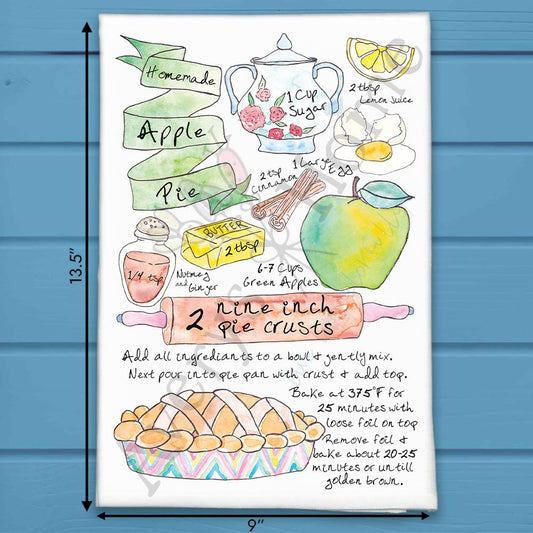 Homemade
Apple
Pie
1 Cup
Sugar
2 tbsp
Lemon Juice
1 Large
Egg
2 tsp
Cinnamon
BUTTER
2 tbsp
1/4 tsp
Nutmeg
and Ginger
6-7 Cups
Green Apples
2 nine inch
pie crusts
Add all ingrediants to a bowl & gently mix.
Next pour into pie pan with crust & add top.
Bake at 375°F for
25 minutes with
loose foil on top
Remove foil &
bake about 20-25
minutes or untill
golden brown.
13.5"
9"